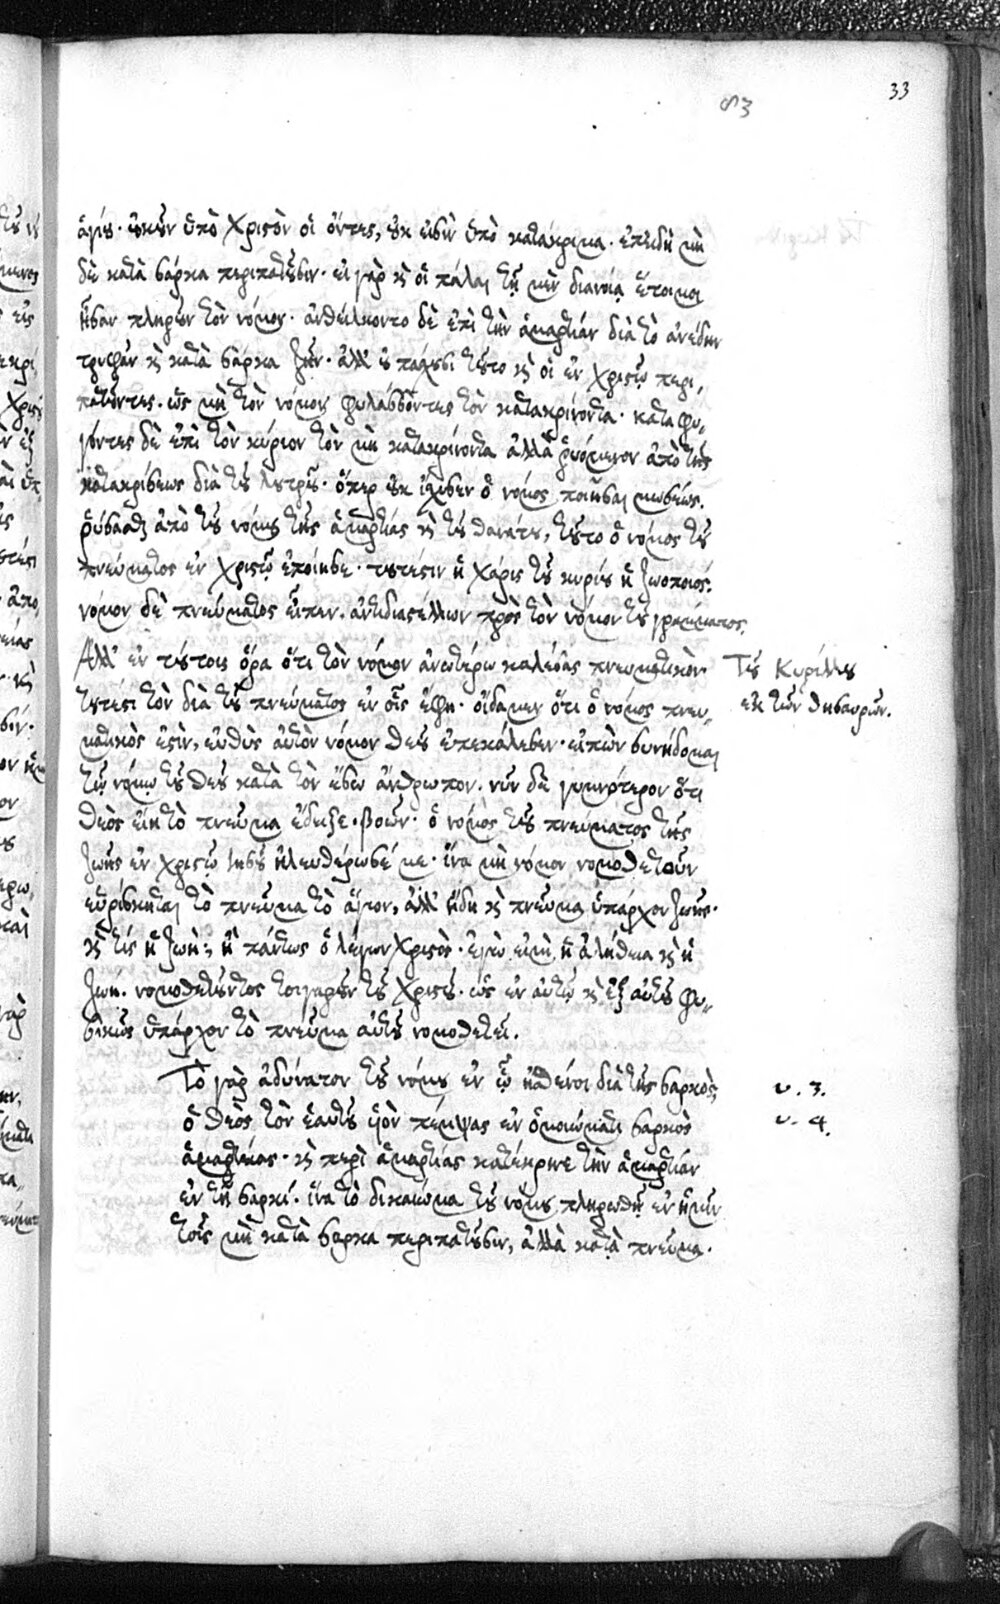 33
83
ἁγίου. οὐκοῦν ὑπὸ Χριστὸν οἱ ὄντες, οὐκ εἰσὶν ὑπὸ κατάκριμα. ἐπειδὴ μὴ
δὲ κατὰ σάρκα περιπατοῦσιν. εἰ γὰρ καὶ οἱ πάλαι τῇ μὲν διανοίᾳ ἕτοιμοι
ἦσαν πληροῦν τὸν νόμον. ἀνθείλκοντο δὲ ἐπὶ τὴν ἁμαρτίαν διὰ τὸ ἀνέδην
τρυφᾶν καὶ κατὰ σάρκα ζῆν. ἀλλ' οὐ πάσχουσι τοῦτο καὶ οἱ ἐν χριστῷ περι,
πατοῦντες. ὡς μὴ τὸν νόμον φυλάσσοντες τὸν κατακρίνοντα. καταφυ,,
γόντες δὲ ἐπὶ τὸν κύριον τὸν μὴ κατακρίνοντα ἀλλὰ ῥυόμενον ἀπὸ τῆς
κατακρίσεως διὰ τοῦ λουτροῦ. ὅπερ οὐκ ἴσχυσεν ὁ νόμος ποιῆσαι μωσέως.
ῥύσασθαι ἀπὸ τοῦ νόμου τῆς ἁμαρτίας καὶ τοῦ θανάτου, τοῦτο ὁ νόμος τοῦ
πνεύματος ἐν χριστῷ ἐποίησε. τουτέστιν ἡ χάρις τοῦ κυρίου ἡ ζωοποιός.
νόμον δὲ πνεύματος εἶπεν. ἀντιδιαστέλλων πρὸς τὸν νόμον τοῦ γράμματος.
Ἀλλ' ἐν τούτοις ὅρα ὅτι τὸν νόμον ἀνωτέρω καλέσας πνευματικὸν
τουτέστι τὸν διὰ τοῦ πνεύματος ἐν οἷς ἔφη. οἴδαμεν ὅτι ὁ νόμος πνευ,,
ματικὸς ἐστὶν, εὐθὺς αὐτὸν νόμον θεοῦ ἐπεκάλεσεν. εἰπὼν συνήδομαι
τῷ νόμῳ τοῦ θεοῦ κατὰ τὸν ἔσω ἄνθρωπον. νῦν δὲ γυμνότερον ὅτι
θεὸς εἴη τὸ πνεῦμα ἔδειξε. βοῶν. ὁ νόμος τοῦ πνεύματος τῆς
ζωῆς ἐν χριστῷ ἰησοῦ ἠλευθέρωσέ με. ἵνα μὴ νόμον νομοθετοῦν
εὑρίσκηται τὸ πνεῦμα τὸ ἅγιον, ἀλλ' ἤδη καὶ πνεῦμα ὑπάρχον ζωῆς.
καὶ τίς ἡ ζωὴ; ἢ πάντως ὁ λέγων Χριστὸς. ἐγὼ εἰμὶ ἡ ἀλήθεια καὶ ἡ
ζωή. νομοθετοῦντος τοιγαροῦν τοῦ Χριστοῦ. ὡς ἐν αὐτῷ καὶ ἐξ αὐτοῦ φυ,,
σικῶς ὑπάρχον τὸ πνεῦμα αὐτοῦ νομοθετεῖ.
Τοῦ Κυρίλλου
ἐκ τῶν θησαυρῶν.
Τὸ γὰρ ἀδύνατον τοῦ νόμου ἐν ᾧ ἠσθένει διὰ τῆς σαρκὸς,
ὁ θεὸς τὸν ἑαυτοῦ υἱὸν πέμψας ἐν ὁμοιώματι σαρκὸς
ἁμαρτίας. καὶ περὶ ἁμαρτίας κατέκρινε τὴν ἁμαρτίαν
ἐν τῇ σαρκί. ἵνα τὸ δικαίωμα τοῦ νόμου πληρωθῇ ἐν ἡμῖν
τοῖς μὴ κατὰ σάρκα περιπατοῦσιν, ἀλλὰ κατὰ πνεῦμα.
v. 3.
v. 4.